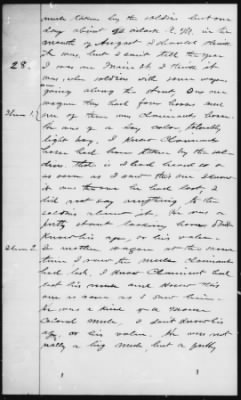 28.
mule taken by the soldiers but one
day about 2 o'clock P.M. in the
month of August I should think
it was, but I can't tell the year
I was on Main St. I think it
was, when soldiers with some wagons
going along the street, On one
wagon they had four horses and
one of them was claimants horse.
Item 1.
he was of a bay color, tolerably
light bay, I knew Claimants
horse had been taken by the sol-
diers, that is I had heard so
as soon as I saw this one I knew
it was the one he had lost, I
did not say anything to the
soldiers about it. He was a
pretty stout looking horse, I don't
know his age, or his value.
Item 2.
In another wagon at the same
time I saw the mule claimant
had lost, I knew Claimant had
lost his mule and knew this
one as soon as I saw him.
He was a kind of a mouse
colored mule, I don't know his
age, or his value. He was not
really a big mule, but a pretty